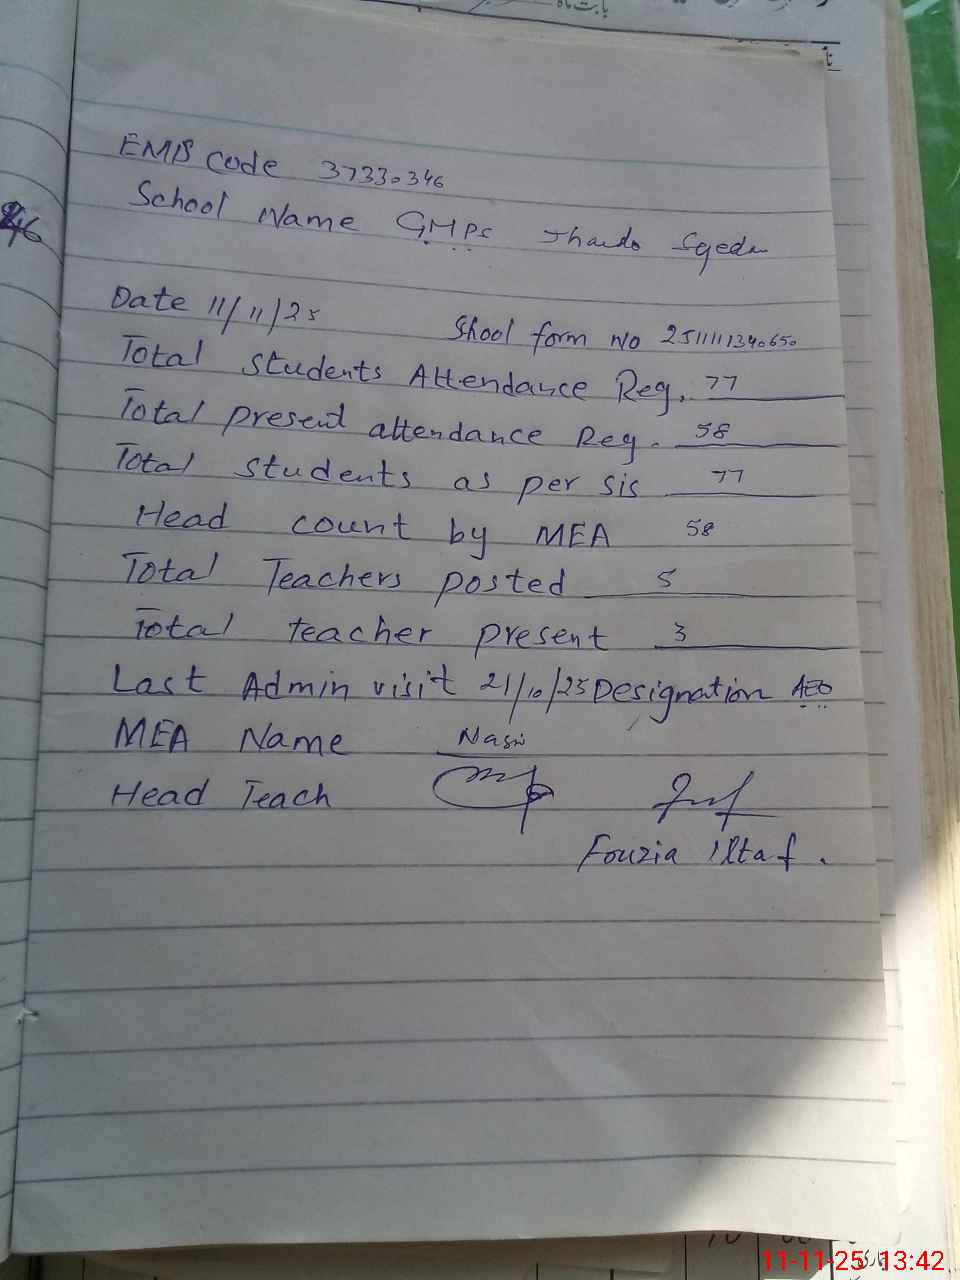 بابت ماہ
46
EMIS Code 37330346
School Name GMPS Jhando Syedan
Date 11/11/25 Shool form No 251111340650
Total Students Attendance Reg. 77
Total present attendance Reg. 58
Total Students as per sis 77
Head count by MEA 58
Total Teachers posted 5
Total teacher present 3
Last Admin visit 21/10/25 Designation AEO
MEA Name Nasir
Head Teach
Fouzia Iltaf.
11-11-25 13:42